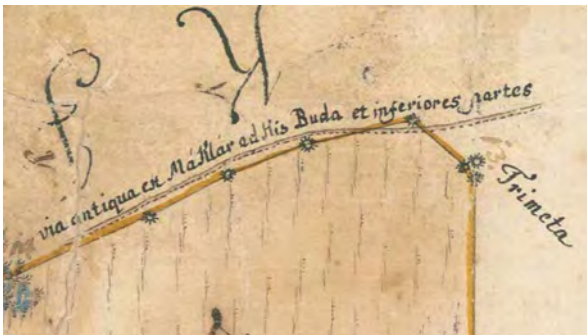 via antiqua ex Maklár ad Kis Buda et inferiores partes
Trimeta